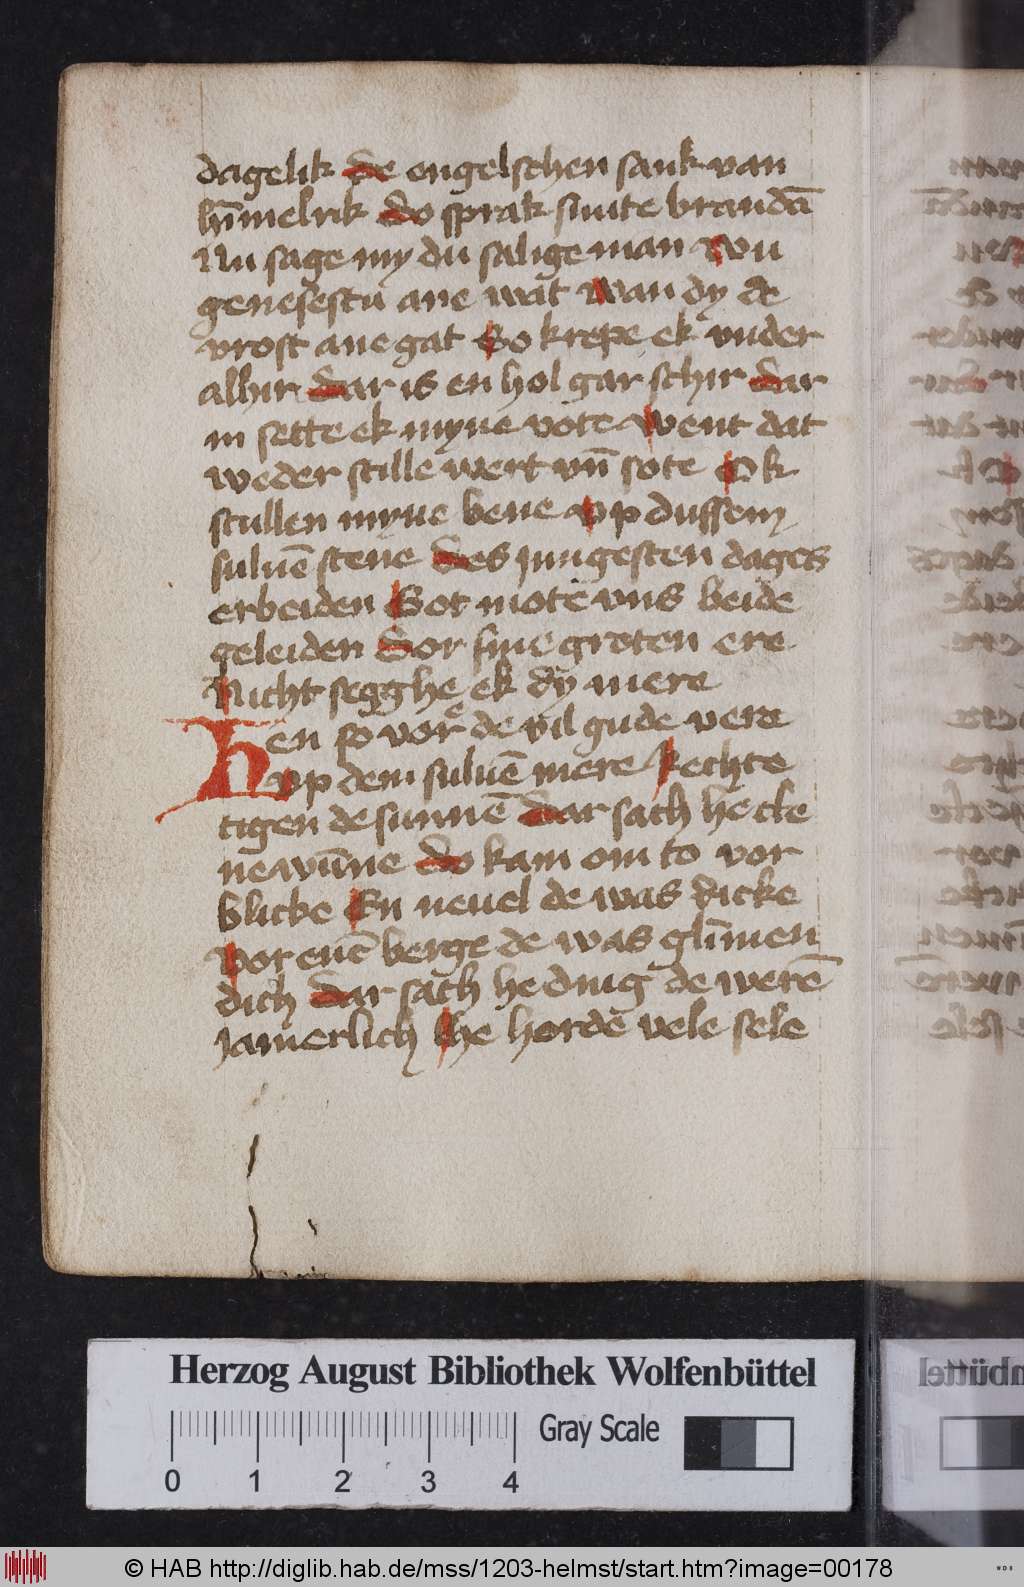 dagelik de engelschen sank van
hīmelrik do sprak sinte brandā
Nu sage my du salige man Wu
genesestu ane wat wan dy de
vrost ane gat So krepe ek vnder
alhir dar is en hol gar schir dar
in sette ek myne vote Went dat
weder stille wert vn̄ sote Ok
stullen myne bene vp dussem
suluē stene des jungesten dages
erbeiden Got mote vns beide
geleiden Dor sine groten ere
Nicht segghe ek dy mere
Hen so vor de vil gude vere
vp dem suluē mere Rechte
tigen de sunnē dar sach he cle
ne wūne do kam om to vor
blicke En neuel de was dicke
Vor enē berge de was glīmen
dich dar sach he ding de werē
jamerlich he horde vele sele
Herzog August Bibliothek Wolfenbüttel
Gray Scale
0 1 2 3 4
© HAB http://diglib.hab.de/mss/1203-helmst/start.htm?image=00178